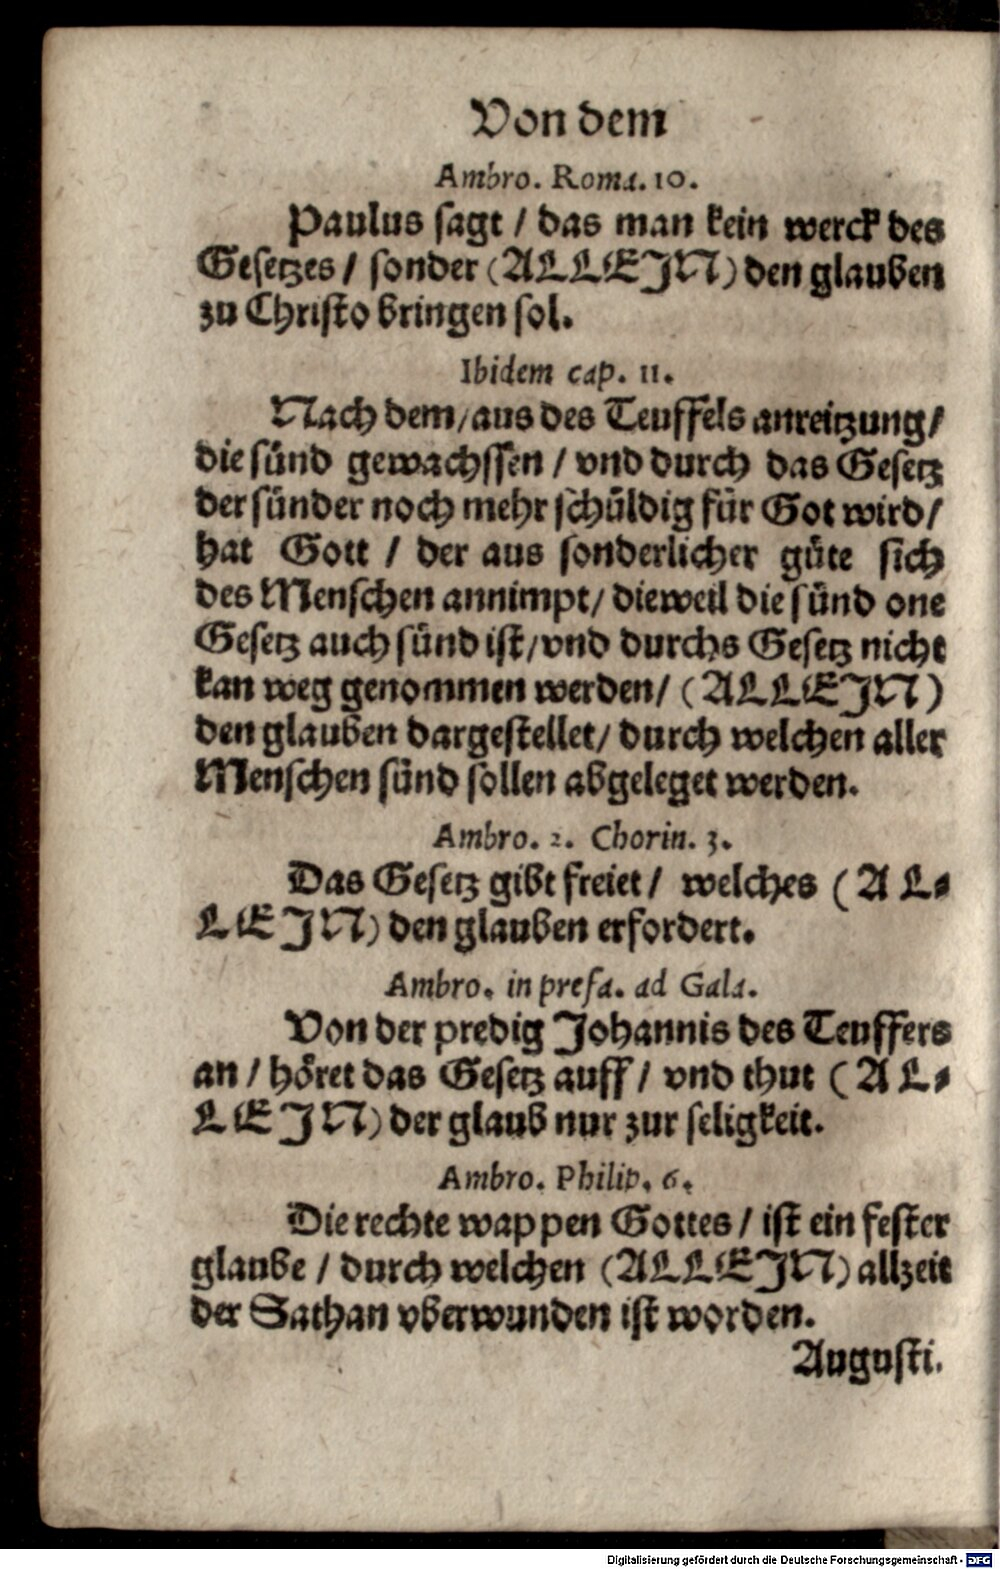 Von dem
Ambro. Roma. 10.
Paulus sagt / das man kein werck des
Gesetzes / sonder (ALLEIN) den glauben
zu Christo bringen sol.
Ibidem cap. 11.
Nach dem / aus des Teuffels anreitzung /
die sünd gewachssen / vnd durch das Gesetz
der sünder noch mehr schüldig für Got wird /
hat Gott / der aus sonderlicher güte sich
des Menschen annimpt / dieweil die sünd one
Gesetz auch sünd ist / vnd durchs Gesetz nicht
kan weg genommen werden / (ALLEIN)
den glauben dargestellet / durch welchen aller
Menschen sünd sollen abgeleget werden.
Ambro. 2. Chorin. 3.
Das Gesetz gibt freiet / welches (AL-
LEIN) den glauben erfordert.
Ambro. in prefa. ad Gala.
Von der predig Johannis des Teuffers
an / höret das Gesetz auff / vnd thut (AL-
LEIN) der glaub nur zur seligkeit.
Ambro. Philip. 6.
Die rechte wappen Gottes / ist ein fester
glaube / durch welchen (ALLEIN) allzeit
der Sathan vberwunden ist worden.
Augusti.
Digitalisierung gefördert durch die Deutsche Forschungsgemeinschaft - DFG